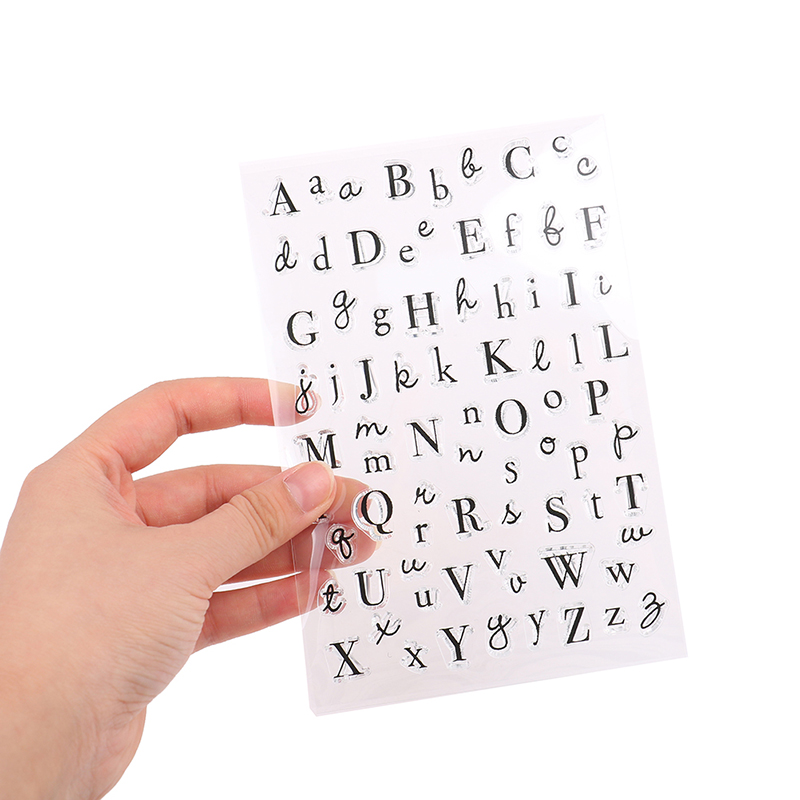 A a a B b b C c c
d d D e e E f f F
G g g H h h i I i
j j J k k K l l L
M m m N n n O o o P
Q q r r R s s S p p t T
t U u u V v v W w w
X x x Y y y Z z z